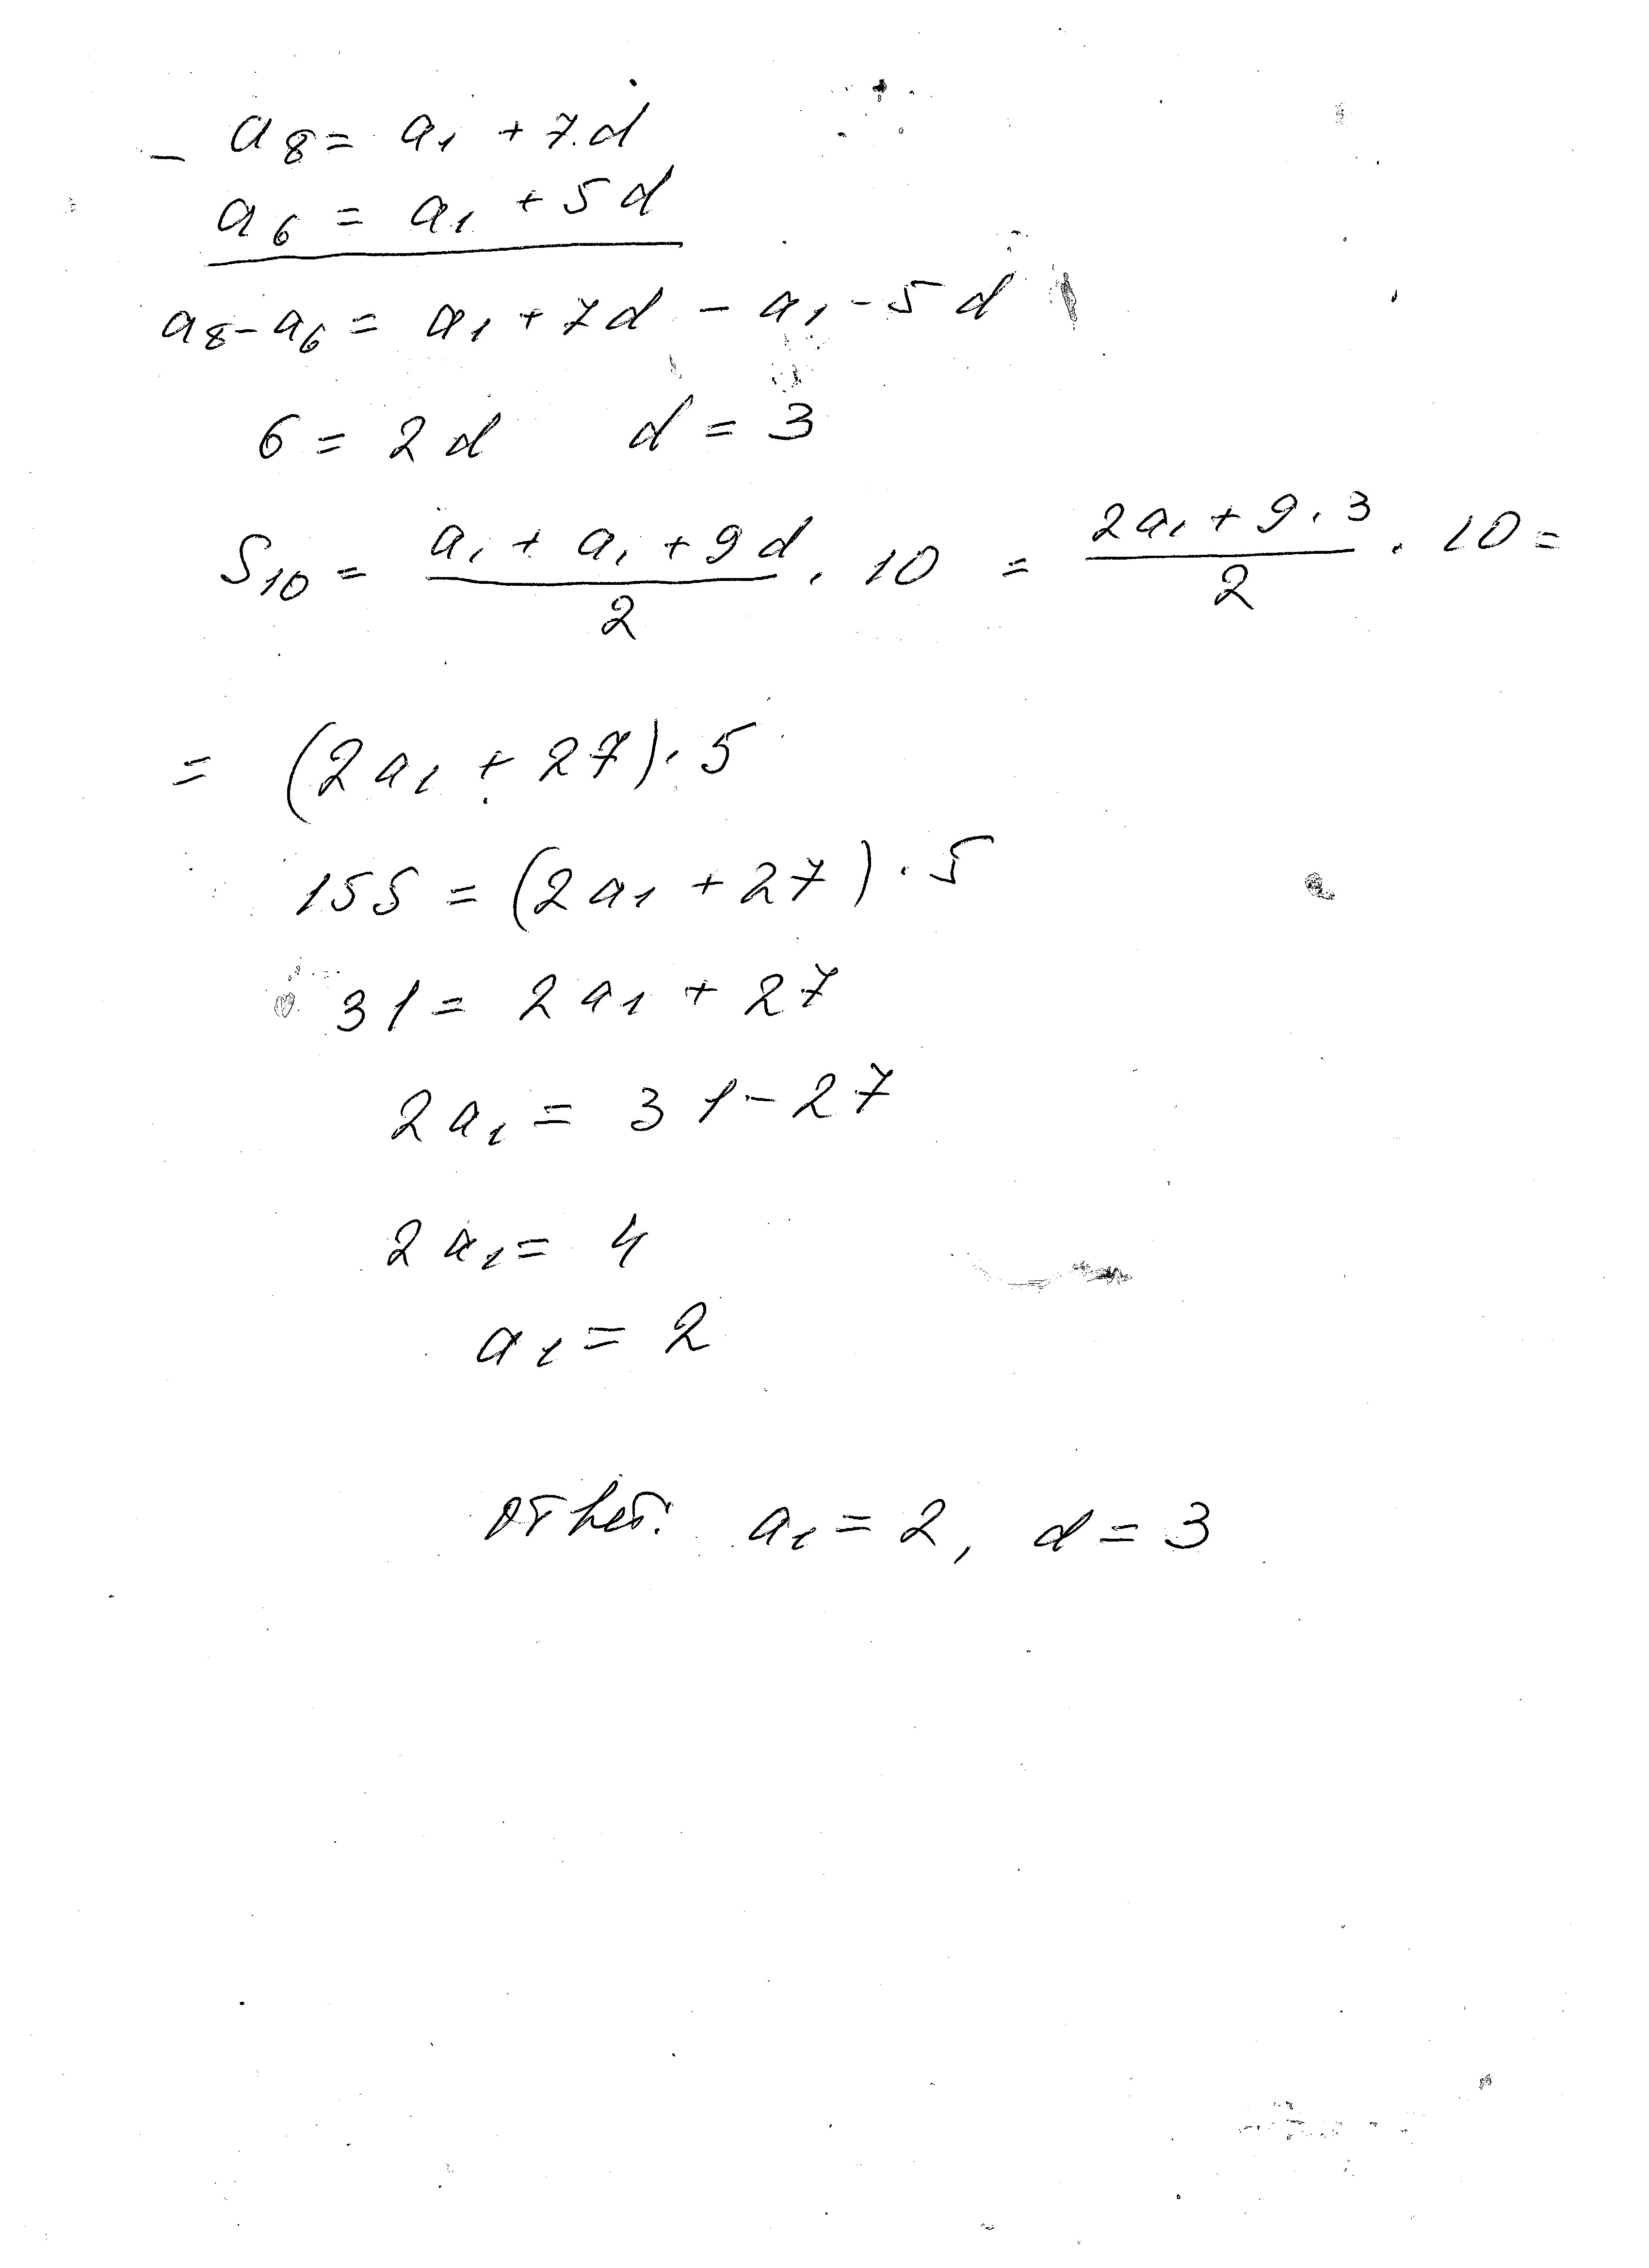 - a₈ = a₁ + 7.d
a₆ = a₁ + 5d
a₈ - a₆ = a₁ + 7d - a₁ - 5d
6 = 2d d = 3
S₁₀ = (a₁ + a₁ + 9d)/2 · 10 = (2a₁ + 9·3)/2 · 10 =
= (2a₁ + 27)·5
155 = (2a₁ + 27)·5
31 = 2a₁ + 27
2a₁ = 31 - 27
2a₁ = 4
a₁ = 2
ответ: a₁ = 2, d = 3